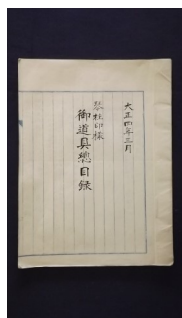 大正四年三月
琴松印様
御道具總目録